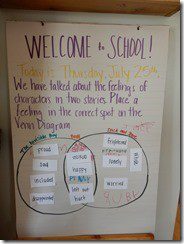 WELCOME to SCHOOL!
Today is Thursday, July 25th,
We have talked about the feelings of
characters in two stories. Place a
feeling in the correct spot on the
Venn Diagram.
proud
sad
included
disappointed
happy
left out
hurt
frightened
lonely
worried